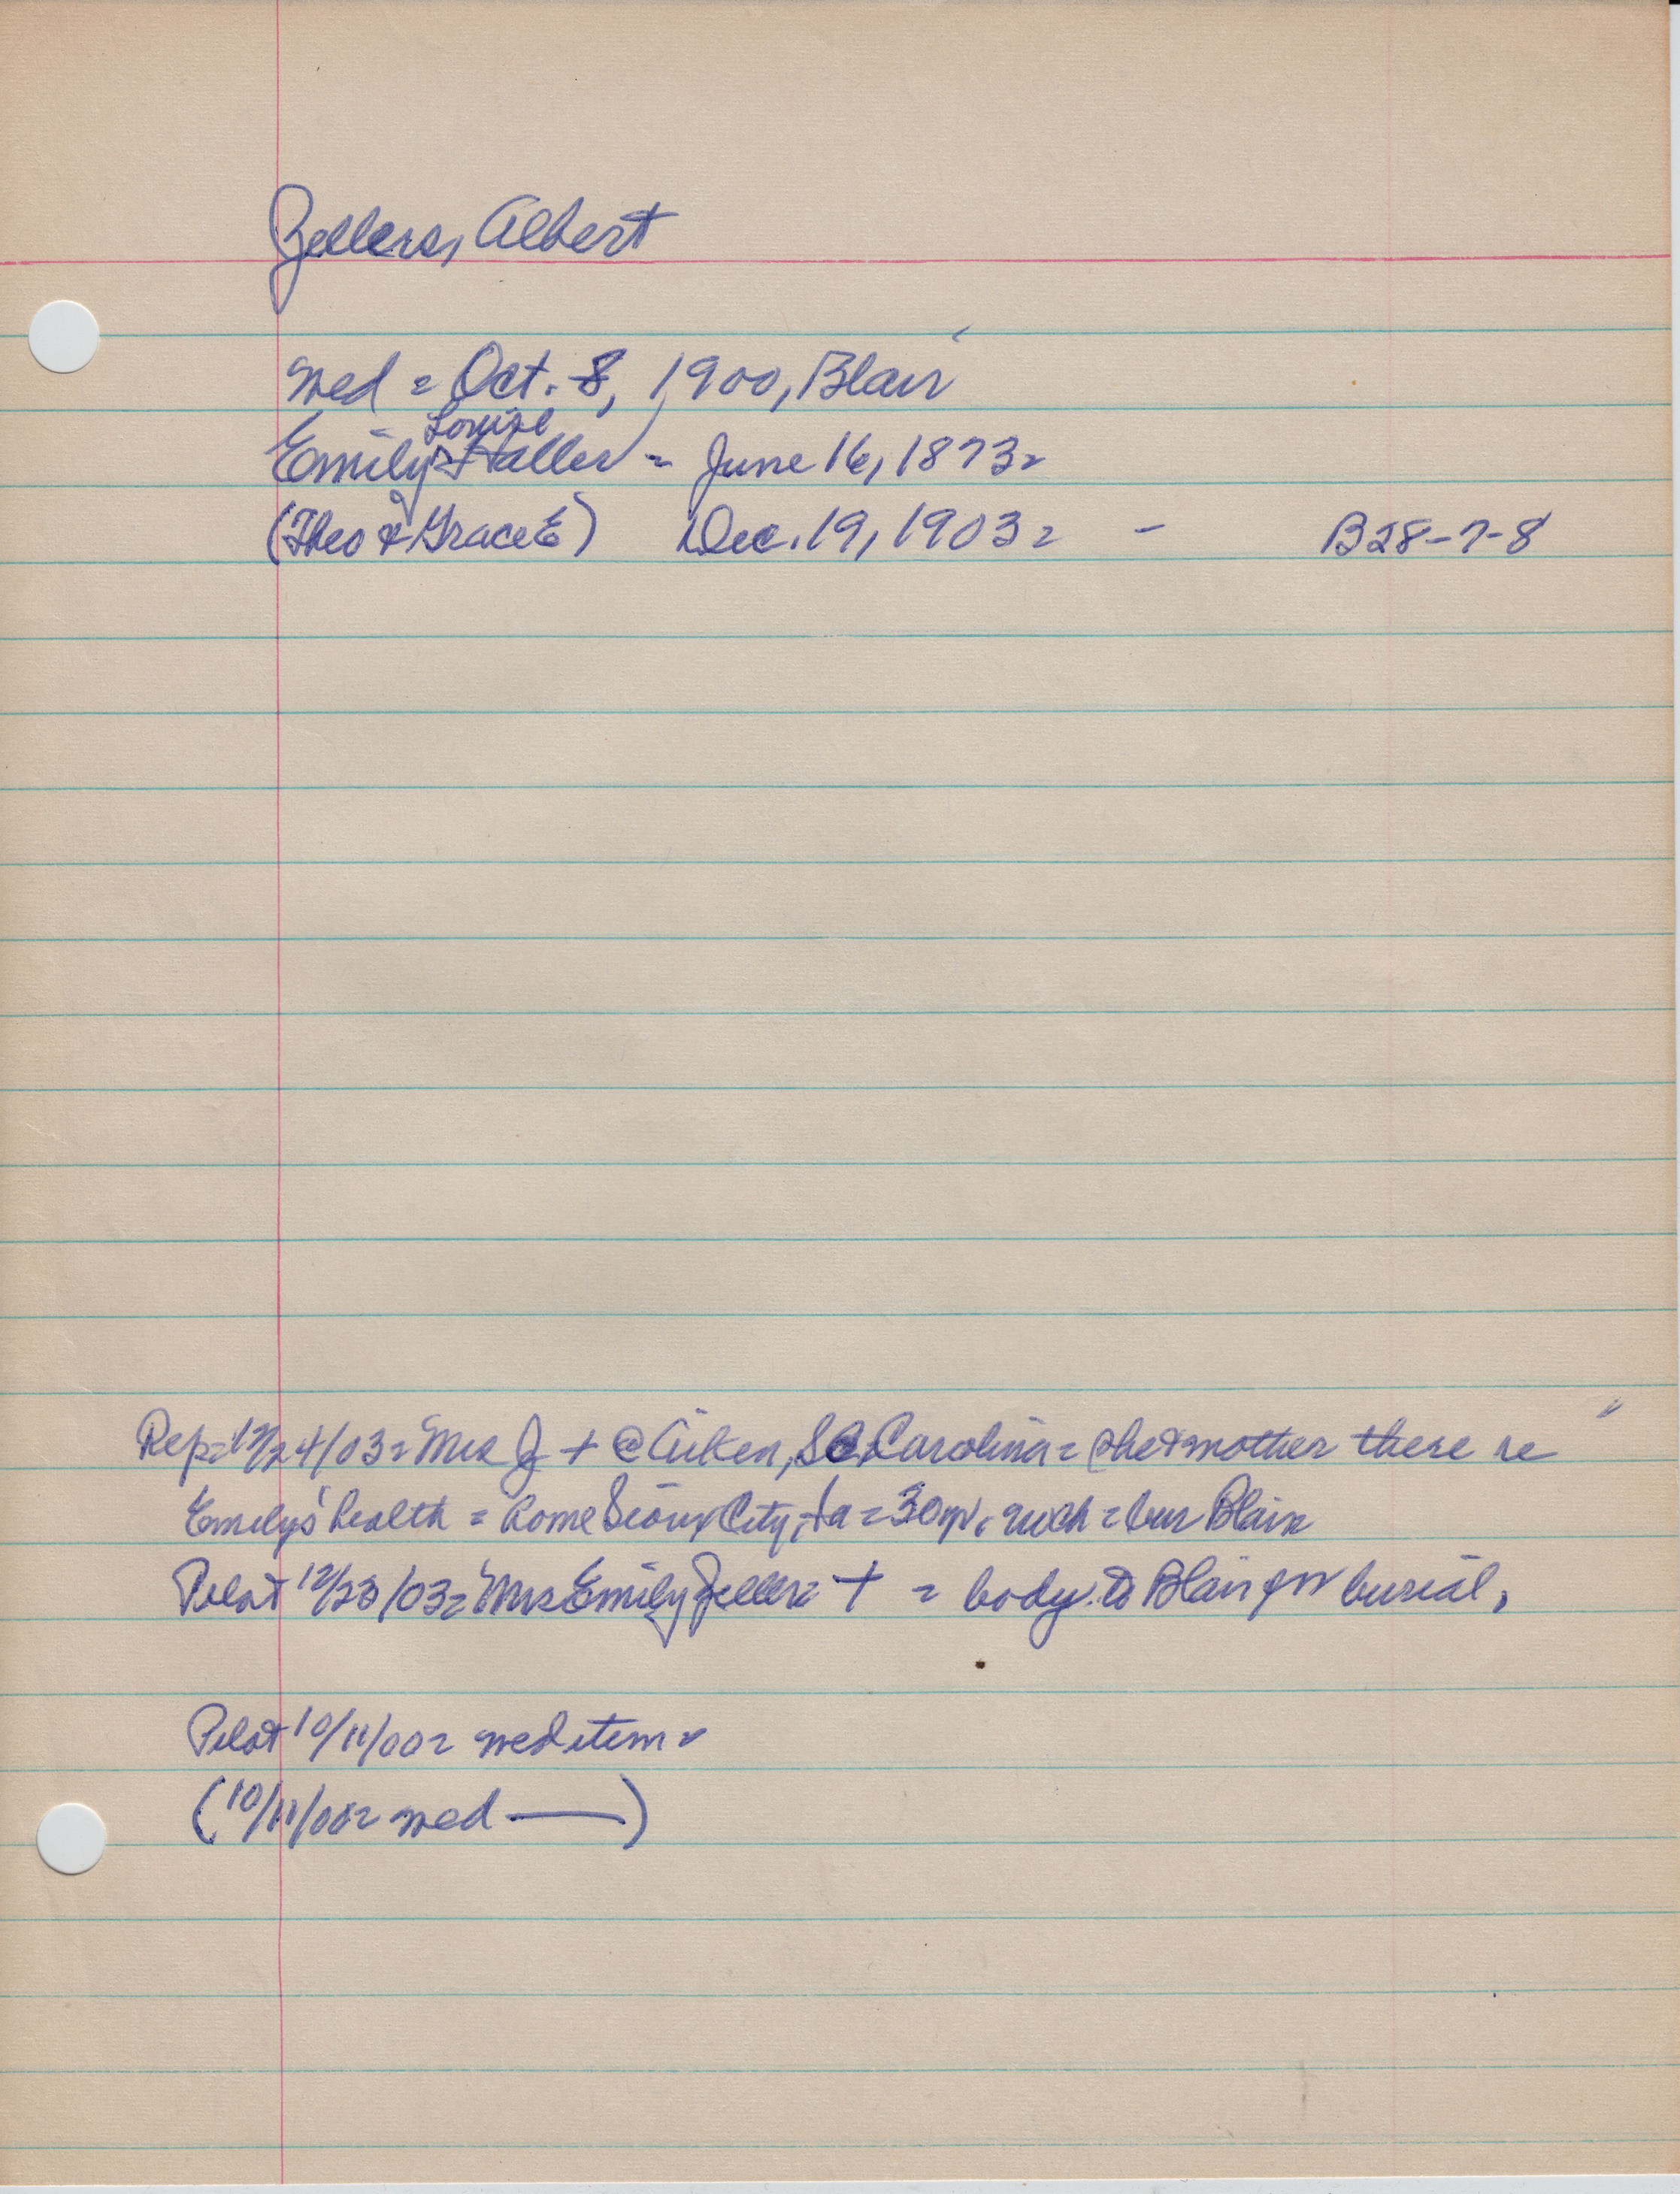 Zellers, Albert
wed = Oct. 8, 1900, Blair
Louise
Emily Haller = June 16, 1873=
(Theo & Grace E) Dec. 19, 1903= - B28-7-8
Rep=12/24/03= Mrs Z + @ Aiken, So Carolina= she & mother there re
Emily's health = home Sioux City, Ia = 30 yr. = bur Blair
Pilot 12/23/03= Mrs Emily Zellers + = body to Blair for burial.
Pilot 10/11/00= wed item=
(10/11/00= wed ——)